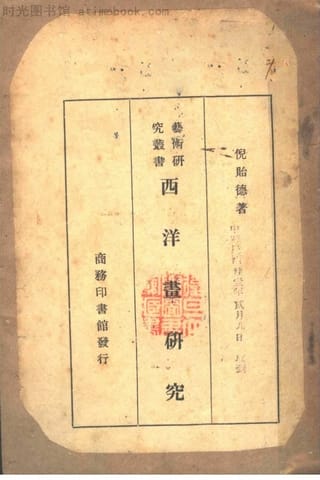 时光图书馆 atimebook.com
倪貽德著
藝術研
究叢書
西洋畫研究
商務印書館發行